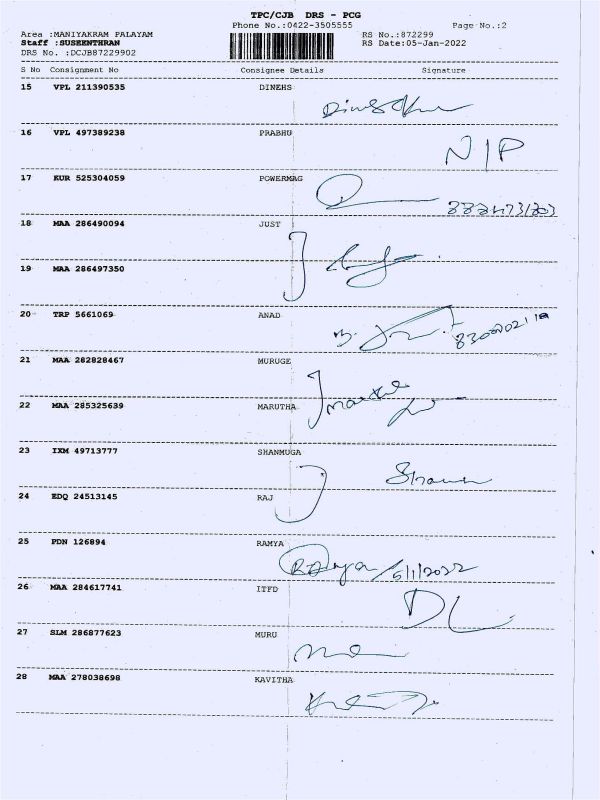 TPC/CJB DRS - PCG
Phone No.:0422-3505555 Page No.:2
Area :MANIYAKRAM PALAYAM RS No.:872299
Staff :SUSEENTHRAN RS Date:05-Jan-2022
DRS No. :DCJB87229902
S No Consignment No Consignee Details Signature
15 VPL 211390535 DINEHS
16 VPL 497389238 PRABHU
N/P
17 KUR 525304059 POWERMAG
18 MAA 286490094 JUST
19 MAA 286497350
20 TRP 5661069 ANAD
21 MAA 282828467 MURUGE
22 MAA 285325639 MARUTHA
23 IXM 49713777 SHANMUGA
24 EDQ 24513145 RAJ
25 PDN 126894 RAMYA
Ramya 5/1/2022
26 MAA 284617741 ITFD
DL
27 SLM 286877623 MURU
28 MAA 278038698 KAVITHA